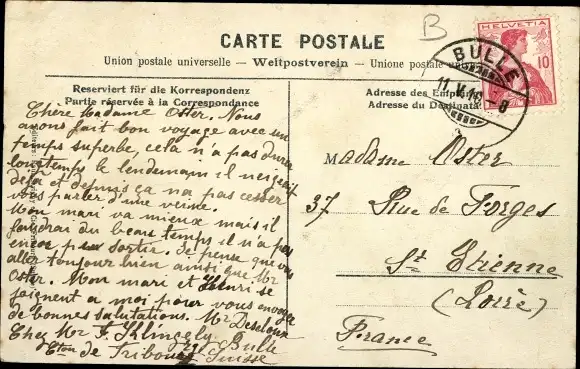 B
CARTE POSTALE
Union postale universelle – Weltpostverein – Unione postale
HELVETIA
10
BULLE
11.V.10 –8
Reserviert für die Korrespondenz
Partie réservée à la Correspondance
Adresse des Empfän
Adresse du Destinata
Chère Madame Oster. Nous
avons fait bon voyage avec un
temps superbe, cela n'a pas durer
longtemps le lendemain il neigeait
déjà et depuis ça na pas cesser
vous parler d'une veine.
Mon mari va mieux mais il
faudrai du beau temps il n'a pas
encore pu sortir. Je pense que vous
aller toujour bien ainsi que Mr
Oster. Mon mari et Henri se
joignent a moi pour vous envoyer
de bonnes salutations. Mr Descloux
Chez Mr F. Klingely Bulle
Cton de Fribourg Suisse
Madame Oster
37 Rue de Forges
St Etienne
(Loire)
France